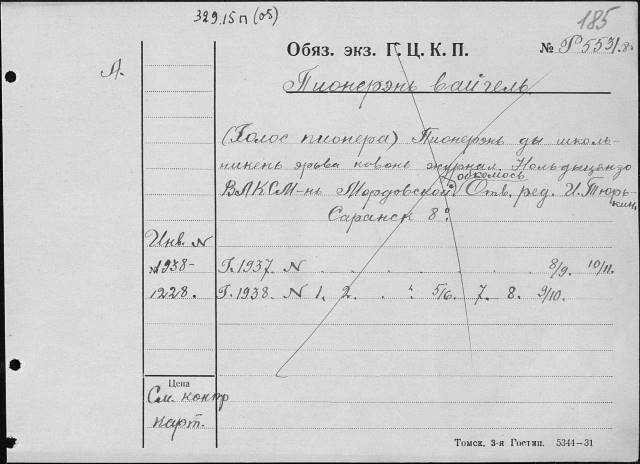 329.15п(05)
185
Обяз. экз. Г. Ц. К. П.
№ Р5531.
А.
Пионерэнь вайгель.
(Голос пионера) Пионерэнь ды школь-
никень эрьва ковонь журнал. Нолдыцязо
ВЛКСМ-нь Мордовской Обкомось. Отв. ред. И. Тюрь-
кин.
Саранск 8°.
Инв. N
N1938-
1228.
Г. 1937. N . . . . . . 8/9. 10/11.
Г. 1938. N 1. 2. . 4. 5/6. 7. 8. 9/10.
Цена
См. контр
карт.
Томск, 3-я Гостип. 5344—31